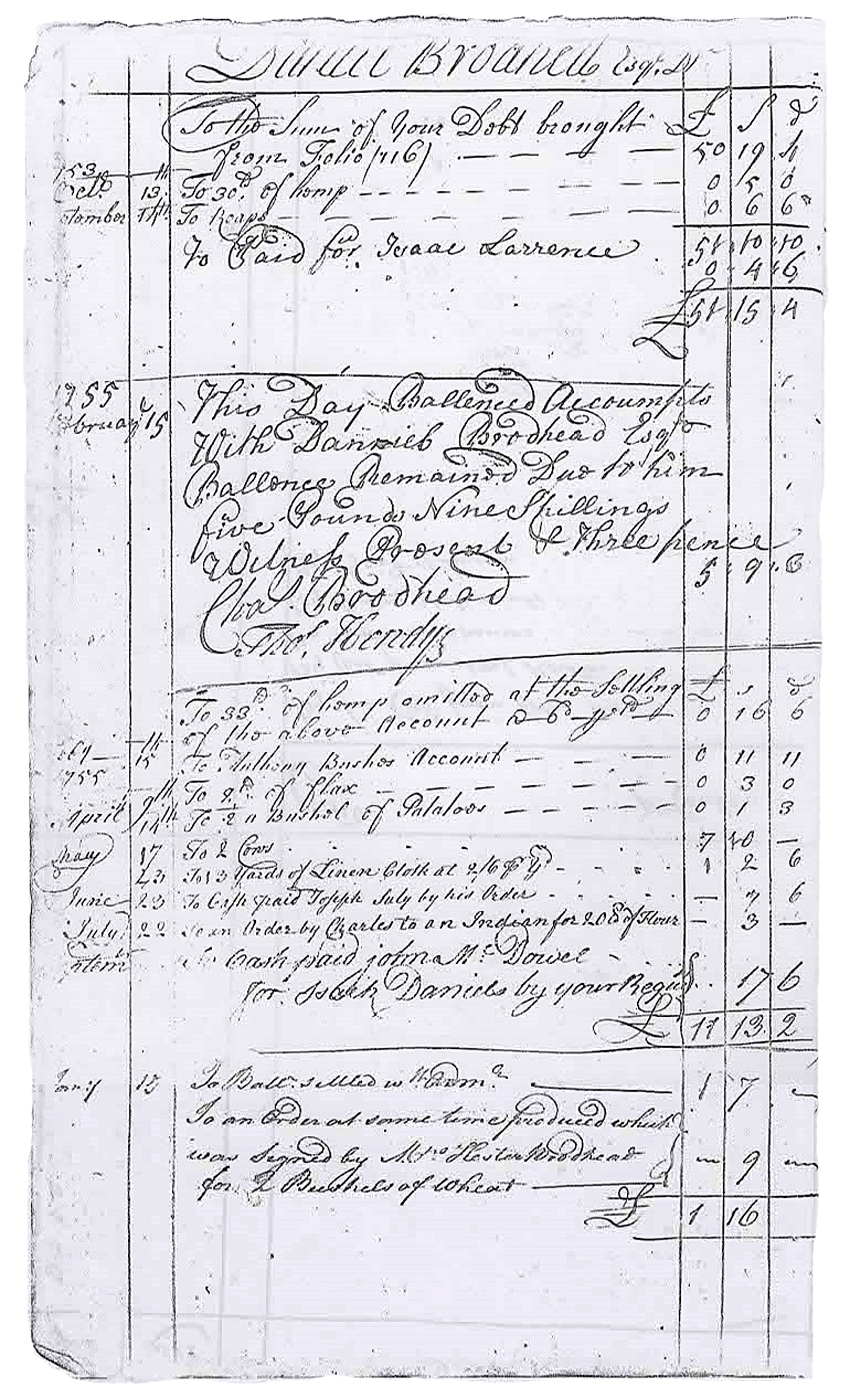 Daniel Brodhead Esqr. Dr
To the Sum of your Debt brought £ s d
from Folio (116) — — — 50 19 4
1753
Octr. 13th To 30 lb of hemp — — — 0 5 0
14th To Reaps — — — 0 6 6
51 10 10
To Paid for Isaac Larrence 0 4 6
£ 51 15 4
1755
February 15 This Day Ballenced Accoumpts
With Danniel Brodhead Esqr
Ballence Remained Due to him
five Pounds Nine Shillings
& Three pence
Witness Present 5 : 9 : 3
Chas. Brodhead
Thos. Hendy
£ s d
To 33 lb of hemp omitted at the Settling
of the above Account @ 6d — 0 16 6
15th To Anthony Bushes Account — — — 0 11 11
1755
9th To 2 lb of flax — — — 0 3 0
April 14th To 2 a Bushel of Pataloes — — — 0 1 3
May 17 To 2 Cows 7 10 —
23 To 13 Yards of Linen Cloth at 2/6 P Yd 1 2 6
June 23 To Cash paid Joseph July by his Order — 7 6
July 22 to an Order by Charles to an Indian for 20 lb of Flour — 3 —
To Cash paid john Mc Dowel
for Daniels by your Request 17 6
£ 11 13 2
Jany 12 To Ball. settled wth — 1 7 —
To an Order at same time produced which
was signed by Mrs Hester Brodhead — 9 —
for 2 Bushels of Wheat
£ 1 16